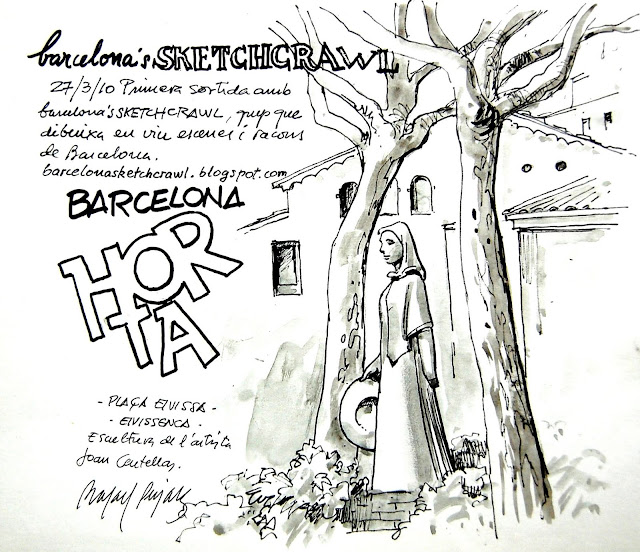 barcelona's SKETCHCRAWL
27/3/10 Primera sortida amb
barcelona's SKETCHCRAWL, grup que
dibuixa en viu escenes i racons
de Barcelona.
barcelonasketchcrawl.blogspot.com
BARCELONA
HOR
TA
- PLAÇA EIVISSA -
- EIVISSENCA -
Escultura de l'artista
Joan Centellas.
Rafael Pujals